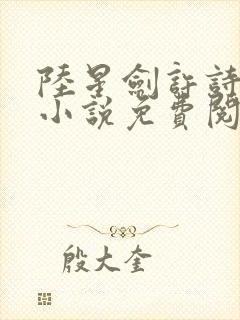 陸星劍許詩
小說免費閱
殷大奎